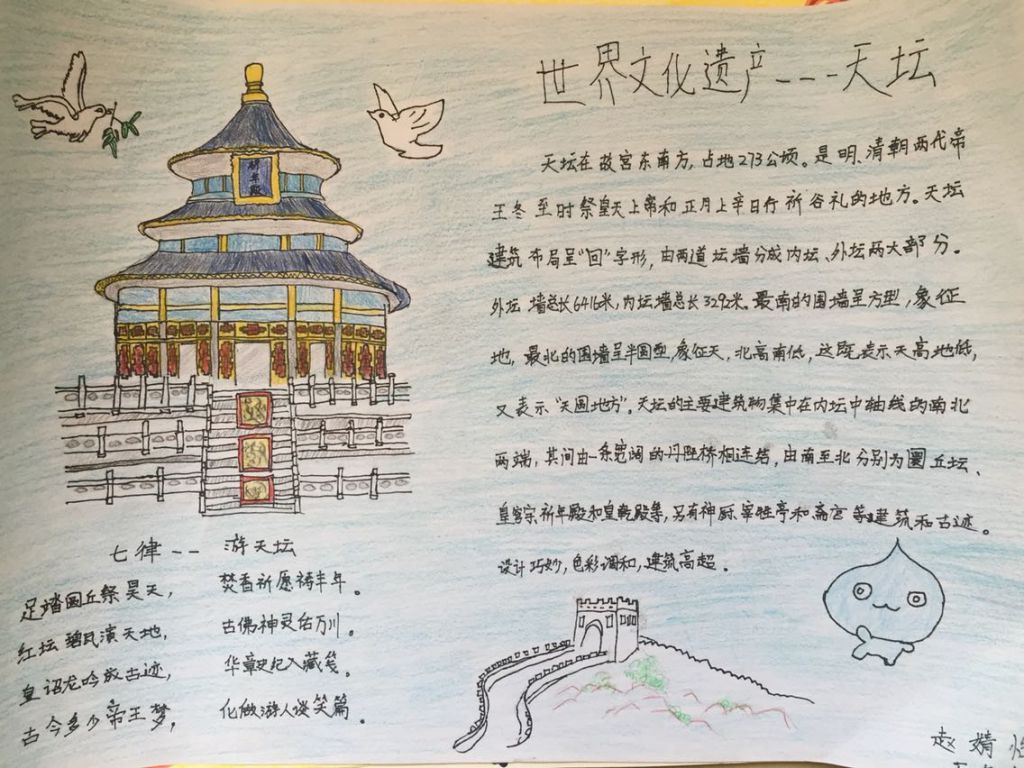 世界文化遗产---天坛
天坛在故宫东南方,占地273公顷。是明、清朝两代帝
王冬至时祭皇天上帝和正月上辛日行祈谷礼的地方。天坛
建筑布局呈“回”字形,由两道坛墙分成内坛、外坛两大部分。
外坛墙总长6416米,内坛墙总长3292米。最南的围墙呈方型,象征
地,最北的围墙呈半圆型,象征天,北高南低,这既表示天高地低,
又表示“天圆地方”。天坛的主要建筑物集中在内坛中轴线的南北
两端,其间由一条宽阔的丹陛桥相连结,由南至北分别为圜丘坛、
皇穹宇祈年殿和皇乾殿等,另有神厨宰牲亭和斋宫等建筑和古迹。
设计巧妙,色彩调和,建筑高超。
祈年殿
七律--游天坛
足踏圆丘祭昊天, 焚香祈愿祷丰年。
红坛碧瓦演天地, 古佛神灵佑万川。
皇诏龙吟成古迹, 华章史记入藏笺。
古今多少帝王梦, 化做游人谈笑篇。
赵婧